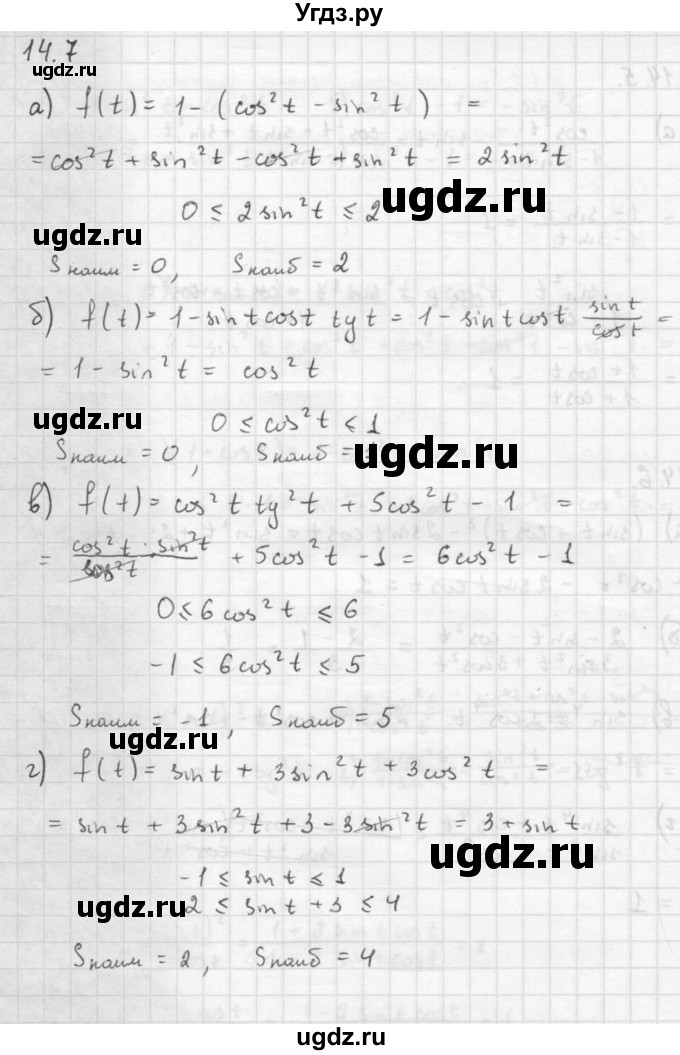 Угдз.ру
14.7
ugdz.ru
а) f(t) = 1 - (cos²t - sin²t) =
= cos²t + sin²t - cos²t + sin²t = 2sin²t
ugdz.ru
0 ≤ 2sin²t ≤ 2
ugdz.ru
Sнаим = 0, Sнаиб = 2
б) f(t) = 1 - sint cost tgt = 1 - sint cost sint/cost =
= 1 - sin²t = cos²t
ugdz.ru
0 ≤ cos²t ≤ 1
ugdz.ru
Sнаим = 0, Sнаиб =
в) f(t) = cos²t tg²t + 5cos²t - 1 =
= cos²t · sin²t/cos²t + 5cos²t - 1 = 6cos²t - 1
0 ≤ 6cos²t ≤ 6
-1 ≤ 6cos²t ≤ 5
Sнаим = -1, Sнаиб = 5
ugdz.ru
г) f(t) = sint + 3sin²t + 3cos²t =
= sint + 3sin²t + 3 - 3sin²t = 3 + sint
ugdz.ru
-1 ≤ sint ≤ 1
ugdz.ru
2 ≤ sint + 3 ≤ 4
Sнаим = 2, Sнаиб = 4
ugdz.ru